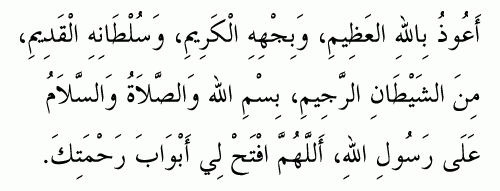 أَعُوذُ بِاللهِ العَظِيمِ، وَبِجْهِهِ الْكَرِيمِ، وَسُلْطَانِهِ الْقَدِيمِ،
مِنَ الشَيْطَانِ الرَّجِيمِ، بِسْمِ الله وَالصَّلَاةُ وَالسَّلَامُ
عَلَى رَسُولِ اللهِ، أَللَّهُمَّ افْتَحْ لِي أَبْوَابَ رَحْمَتِكَ.